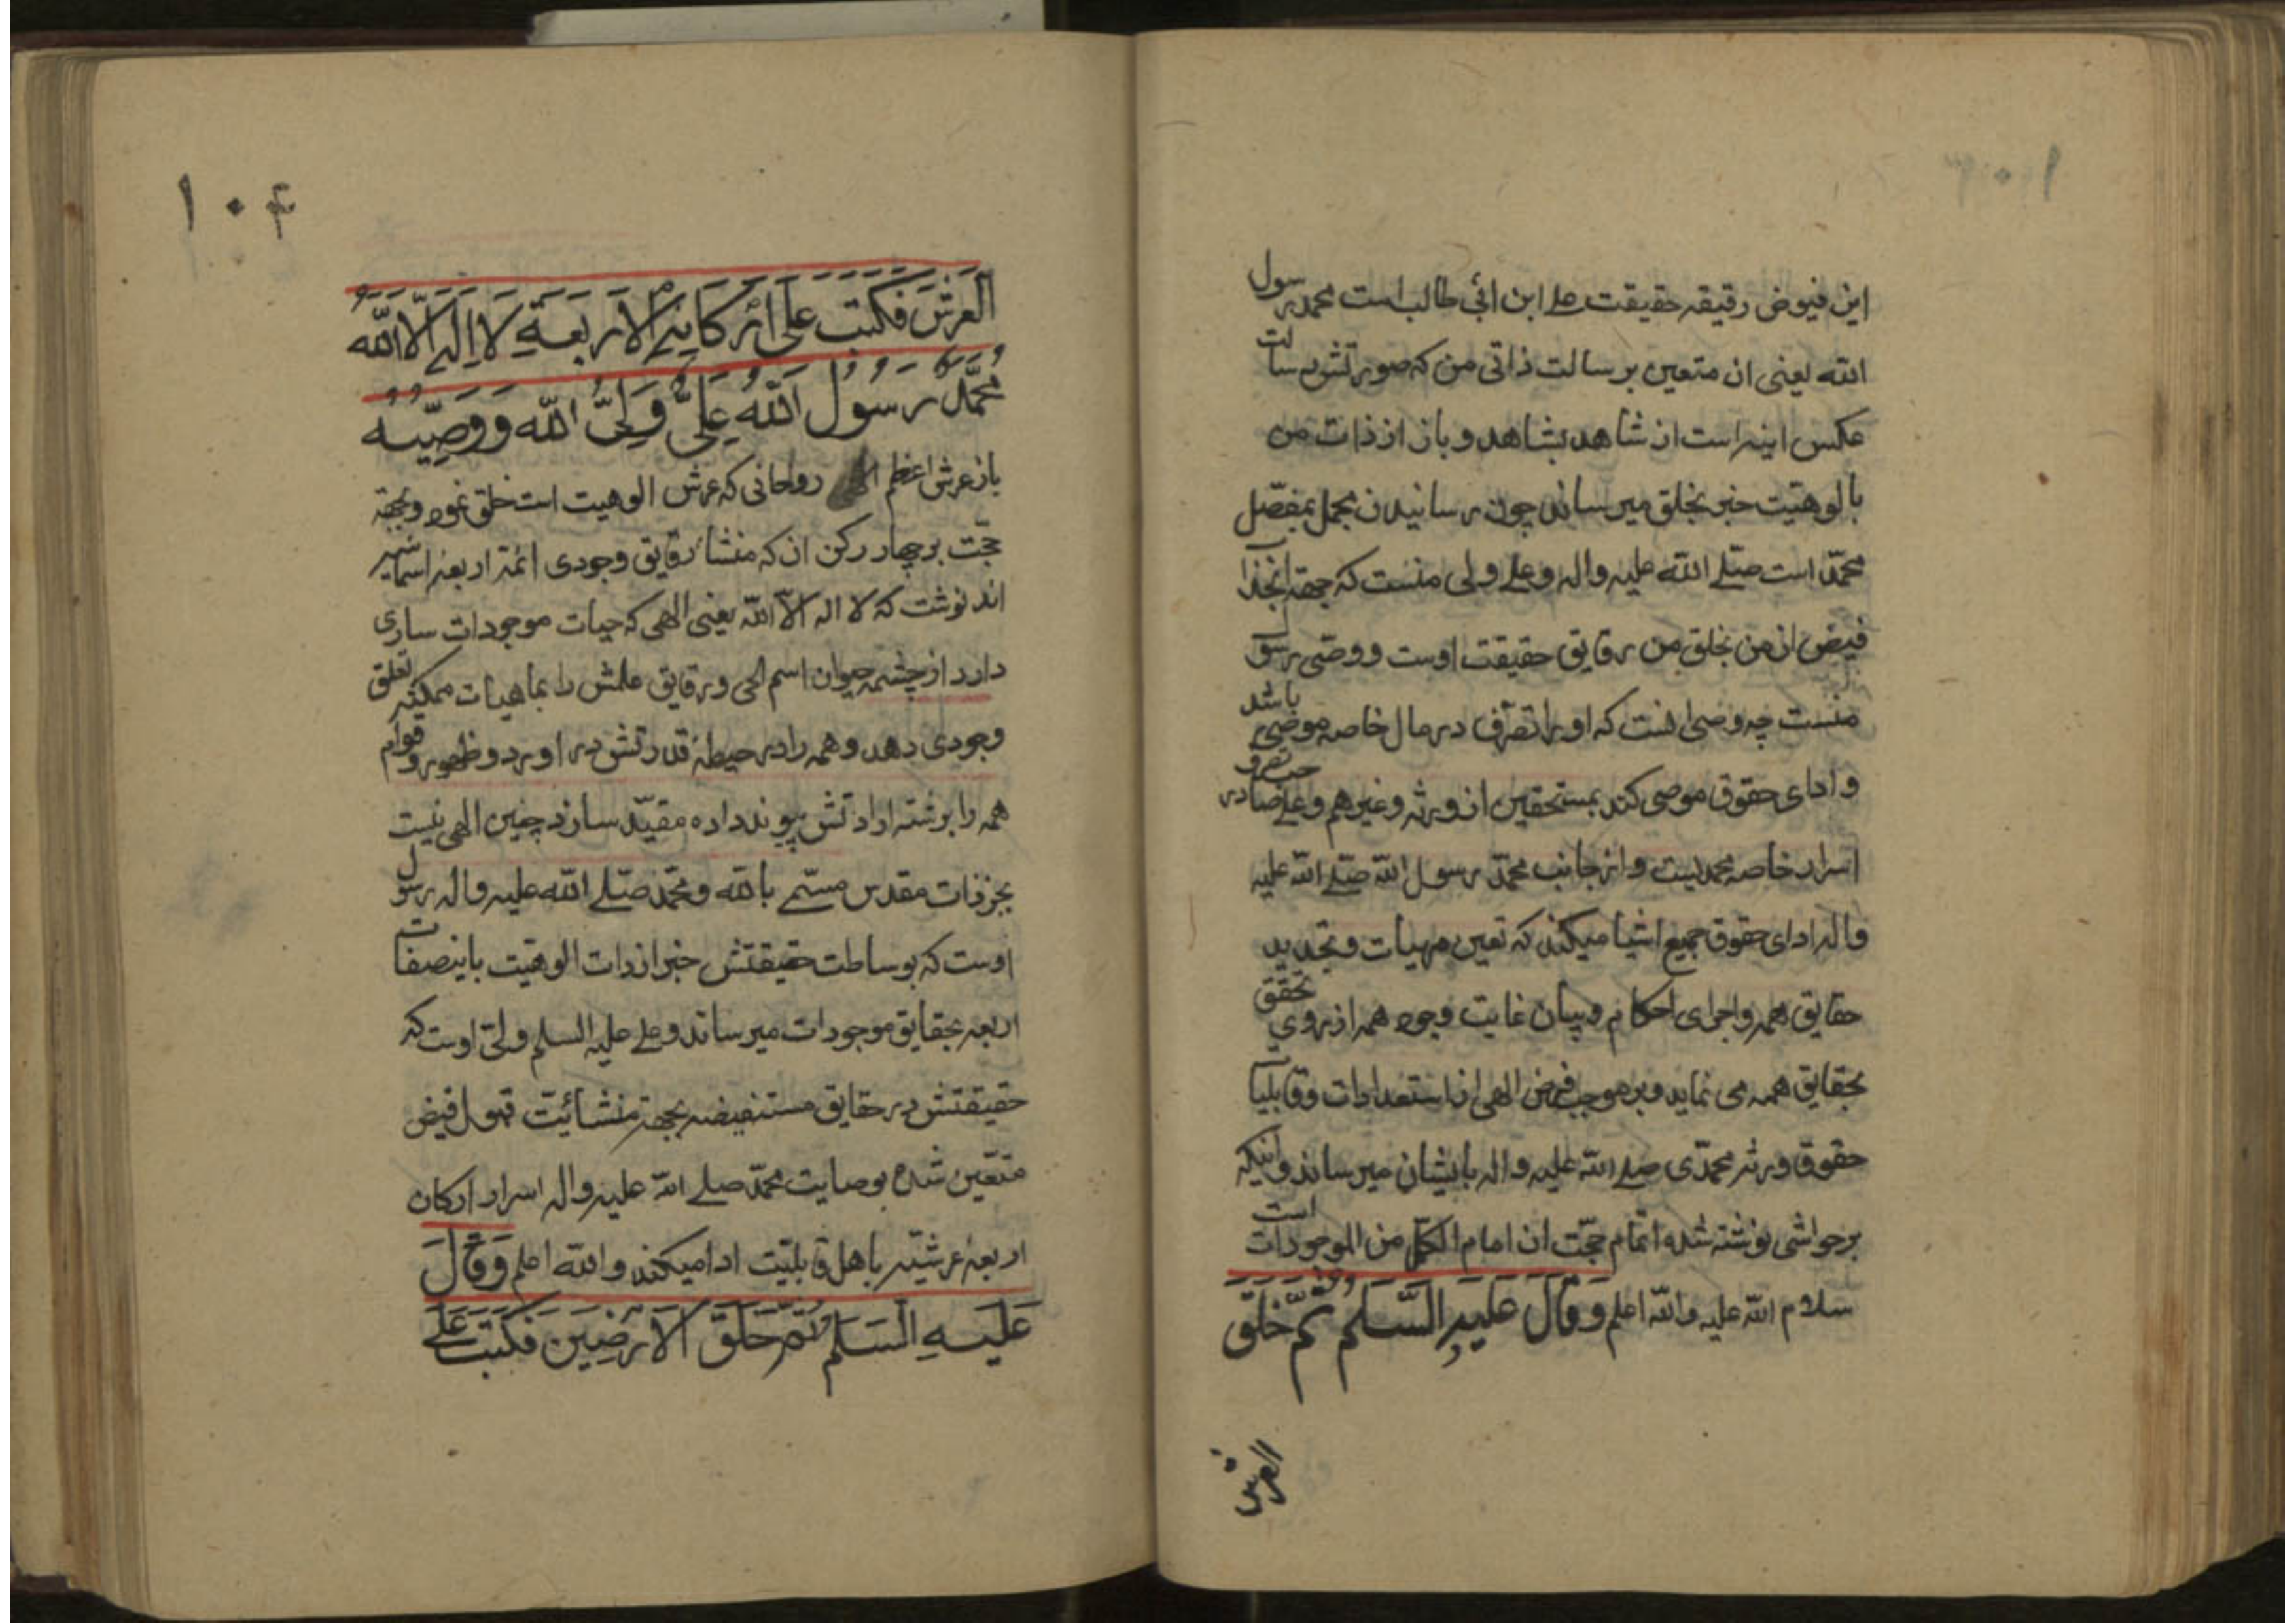 این فیوض رقیقه حقیقت علی ابن ابی طالب است محمد رسول
الله یعنی ان متعین برسالت ذاتی من که صورتش رسالت
عکس اینه است از شاهد بشاهد و باز از ذات من
بالوهیت خبر بخلق میرساند چون رسانیدن مجمل بمفصّل
محمّد است صلی الله علیه واله و علی ولی منست که جهة
فیض از من بخلق من رقایق حقیقت اوست و وصی رسول
منست چه وصی انست که او را تصرّف در مال خاصه موصی باشد
و ادای حقوق موصی کند بمستحقین از ورثه و غیرهم و علی
اسرار خاصه محمدیست و از جانب محمّد رسول الله صلّی الله علیه
واله ادای حقوق جمیع اشیا میکند که تعین مهیات و تجدید
حقایق همه و اجرای احکام و بیان غایت وجود همه از روی تحقق
بحقایق همه می نماید و بر موجب فیض الهی از استعدادات و قابلیات
حقوق ورثه محمّدی صلی الله علیه واله بایشان میرساند و اینکه
برحواشی نوشته شده اتمام حجّت ان امام الکل من الموجودات است
سلام الله علیه والله اعلم وَقَالَ عَلَیهِ السَّلَم ثُمَّ خَلَقَ
العرش
۱۰۴
العَرشَ فَکَتَبَ عَلی اَرْکَانِهِ الاَربَعَةِ لَا اِلهَ اِلّا اللهُ
مُحَمَّدٌ رَسُولُ اللهِ عَلِیٌّ وَلِیُّ اللهِ وَوَصِیُّهُ
باز عرش اعظم روحانی که عرش الوهیت است خلق نمود و بجهة
حجّت بر چهار رکن ان که منشأ رقایق وجودی ائمّه اربعه اسمائیه
اند نوشت که لا اله الّا الله یعنی الهی که حیات موجودات ساری
دارد از چشمه حیوان اسم الحی و رقایق علمش را بماهیات ممکنه تعلق
وجودی دهد و همه را در حیطهٔ قدرتش در اورد و ظهور و قوام
همه را برشته ارادتش پیوند داده مقیّد سازد چنین الهی نیست
بجز ذات مقدس مسمّی بالله و محمّد صلّی الله علیه واله رسول
اوست که بوساطت حقیقتش خبر از ذات الوهیت باینصفات
اربعه بحقایق موجودات میرساند و علی علیه السلم ولیّ اوست که
حقیقتش در حقایق مستفیضه بجهة منشائیت قبول فیض
متعّین شده بوصایت محمّد صلی الله علیه واله اسرار ارکان
اربعهٔ عرشیّه باهل قابلیّت ادا میکند والله اعلم وَقَالَ
عَلَیهِ السَّلَم ثُمَّ خَلَقَ الاَرَضِینَ فَکَتَبَ عَلَی